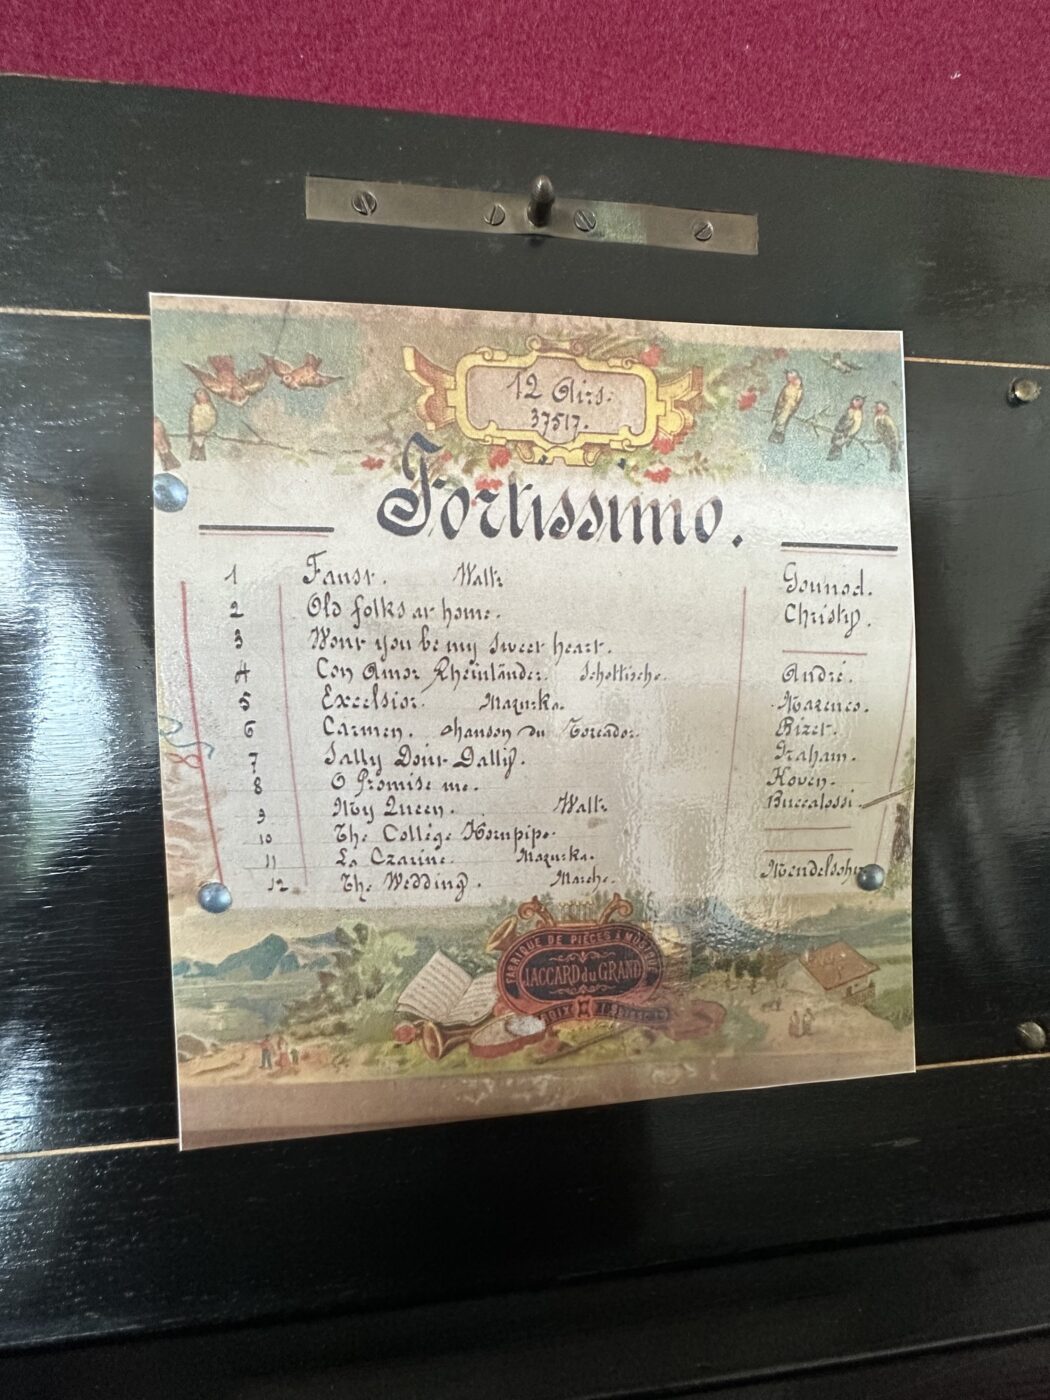 12 Airs.
37517.
Fortissimo.
1 Faust. Waltz Gounod.
2 Old folks at home. Christy.
3 Wont you be my sweet heart.
4 Con Amor Rheinländer. Schottische. André.
5 Excelsior. Mazurka. Marenco.
6 Carmen. chanson du Toreador. Bizet.
7 Sally Dont Dally. Graham.
8 O Promise me. Koven.
9 My Queen. Waltz Bucalossi
10 The College Hornpipe.
11 La Czarine. Mazurka.
12 The Wedding. Marche.
FABRIQUE DE PIECES A MUSIQUE
JACCARD du GRAND